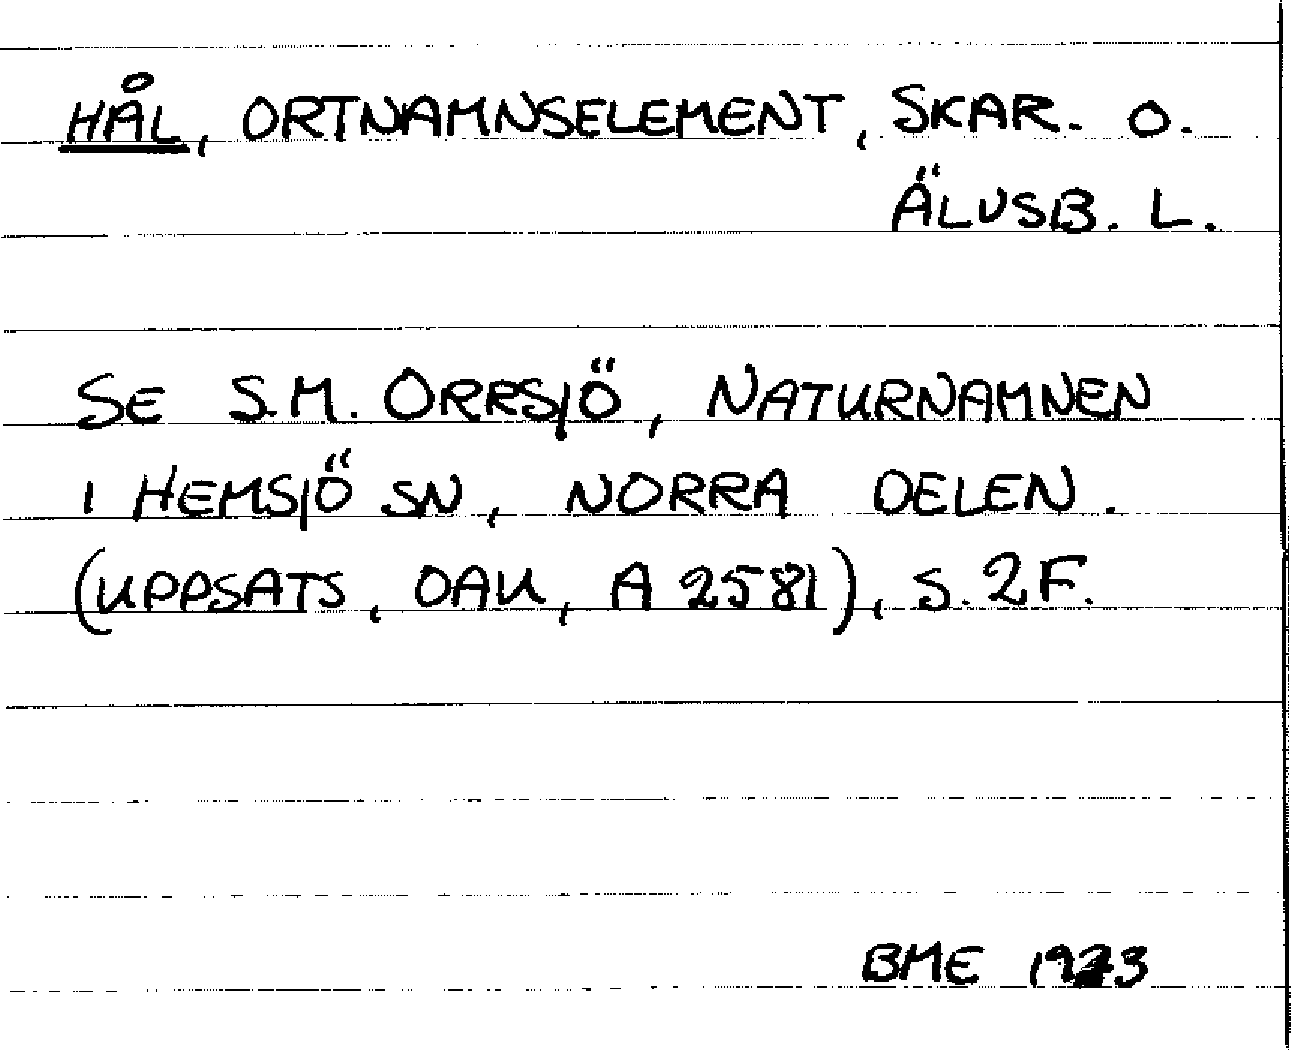 HÅL, ORTNAMNSELEMENT, SKAR. O.
ÄLVSB. L.
SE S.M. ORRSJÖ, NATURNAMNEN
I HEMSJÖ SN, NORRA DELEN.
(UPPSATS, OAU, A 2581), S. 2F.
BME 1973